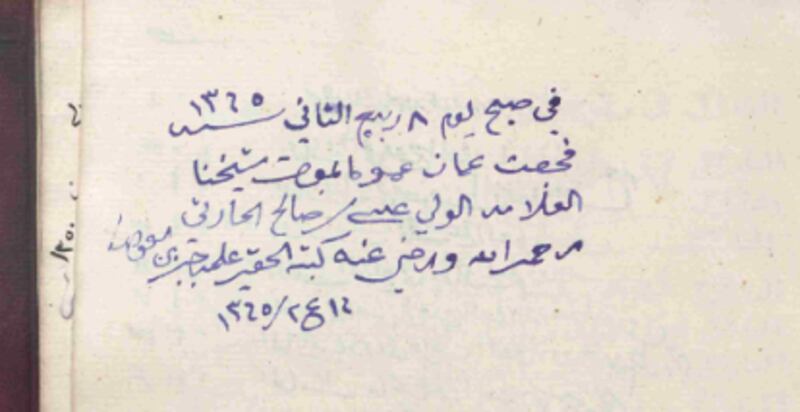 في صبح يوم ٨ ربيع الثاني سنة ١٣٦٥
فجعت عمان عموما بموت شيخنا
العلامة الولي عيسى بن صالح الحارثي
رحمه الله ورضي عنه كتبه الحقير علي بن جبر
١٤ ع٢ / ١٣٦٥